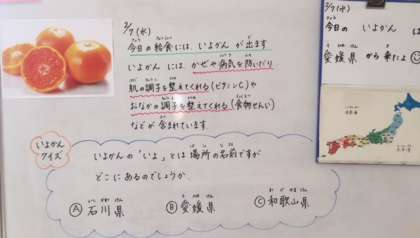 2/7(水)
今日の給食には、いよかん が 出ます
いよかん には、かぜや 病気を 防いだり
肌の調子を整えてくれる(ビタミンC)や
おなかの調子を整えてくれる(食物せんい)
などが 含まれています
いよかん
クイズ
いよかんの "いよ" とは 場所の名前ですが
どこにあるのでしょうか。
Ⓐ 石川県 Ⓑ 愛媛県 Ⓒ 和歌山県
2/7(水)
今日の いよかん は
愛媛県 から 来たよ